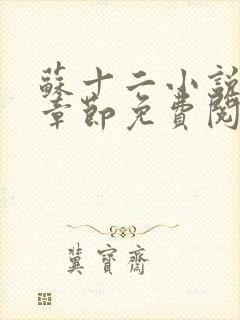 蘇十二小說
章節免費閱
冀寶齋